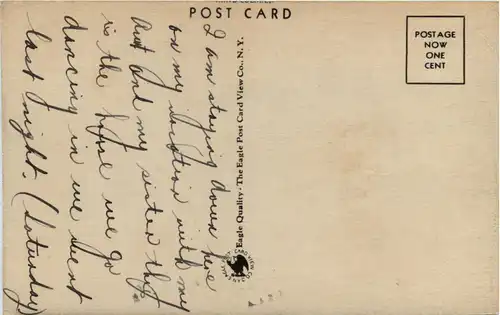 POST CARD
POSTAGE
NOW
ONE
CENT
I am staying down here
on my vacation with my
Aunt and my sister this
is the house we go
dancing in we went
last night. (Saturday)
Eagle Quality - The Eagle Post Card View Co., N.Y.